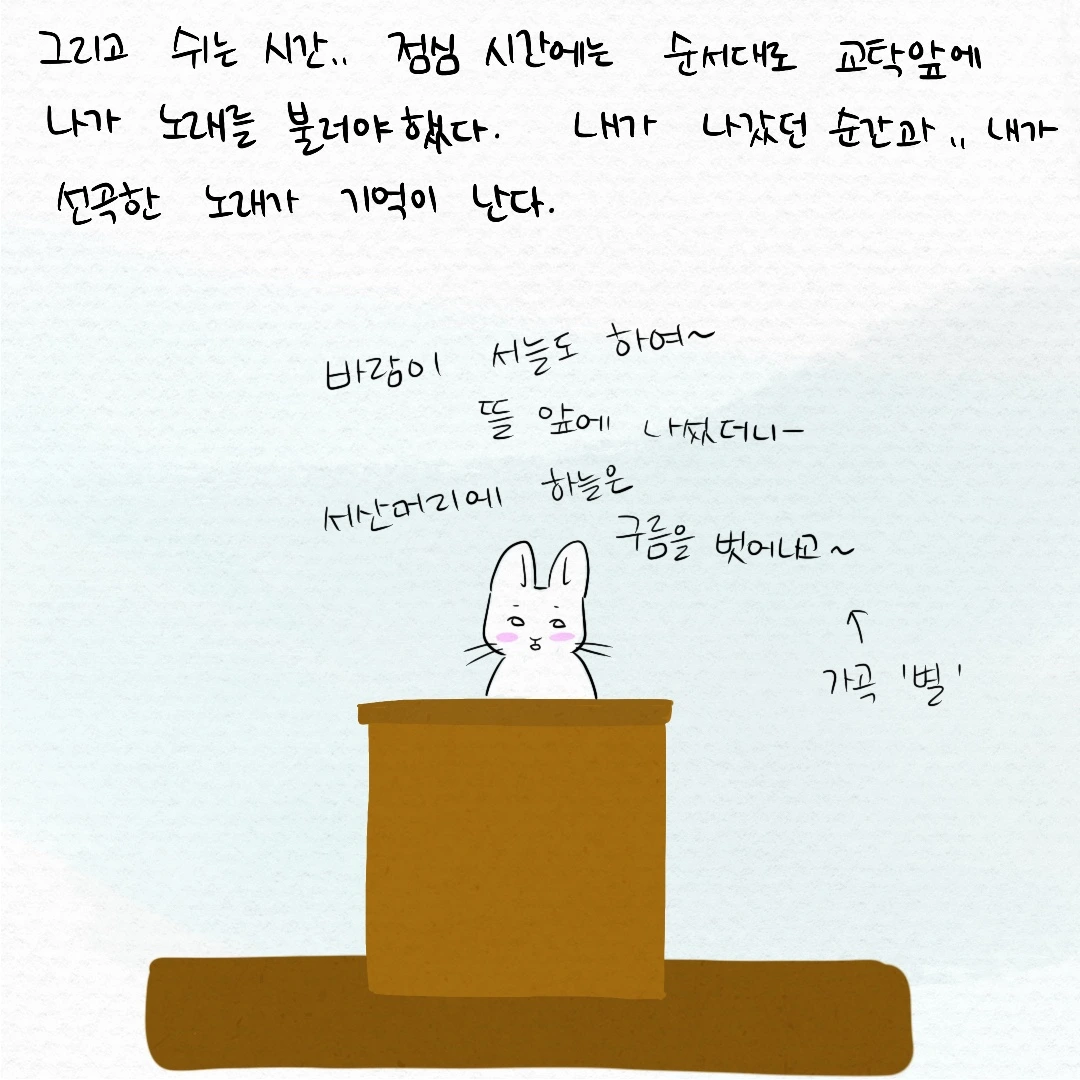 그리고 쉬는 시간.. 점심 시간에는 순서대로 교탁앞에
나가 노래를 불러야했다. 내가 나갔던 순간과.. 내가
선곡한 노래가 기억이 난다.
바람이 서늘도 하여~
뜰 앞에 나섰더니-
서산머리에 하늘은
구름을 벗어나고~
↑
가곡 '별'